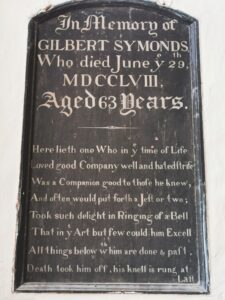 In Memory of
GILBERT SYMONDS,
Who died June yᵉ 29,ᵗʰ
MDCCLVIII,
Aged 63 Years.
Here lieth one Who in yᵉ time of Life
Loved good Company well and hated strife
Was a Companion good to those he knew,
And often would put forth a Jest or two;
Took such delight in Ringing of a Bell
That in yᵉ Art but few could him Excell
All things below wᵗʰ him are done & past,
Death took him off, his knell is rung at
Last